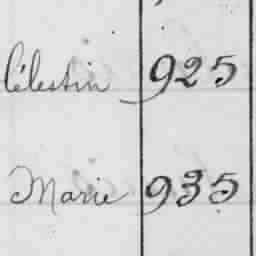 Célestin 925
Marie 935